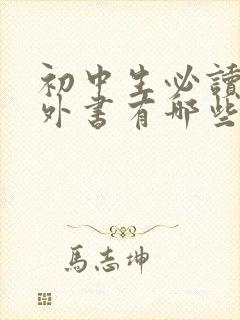 初中生必讀
外書有哪些
馬志坤